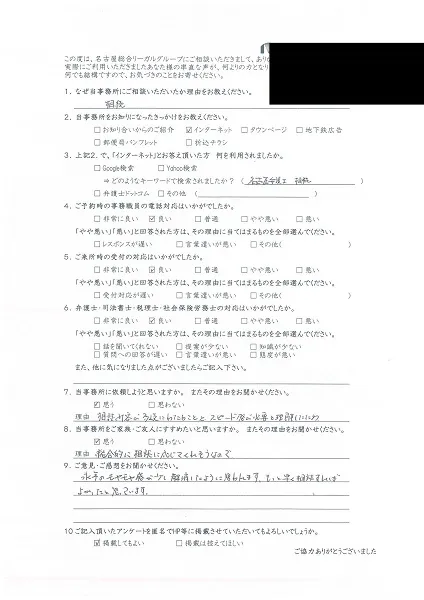 この度は、名古屋総合リーガルグループにご相談いただきまして、あり
実際にご利用いただきましたあなた様の率直な声が、何よりの力となり
何でも結構ですので、お気づきのことをお寄せください。
1. なぜ当事務所にご相談いただいたか理由をお教えください。
相続
2. 当事務所をお知りになったきっかけをお教えください。
□お知り合いからのご紹介 ☑インターネット □タウンページ □地下鉄広告
□郵便局パンフレット □折込チラシ
3. 上記2. で、「インターネット」とお答え頂いた方 何を利用されましたか。
□Google検索 □Yahoo検索
⇒どのようなキーワードで検索されましたか？ ( 名古屋弁護士 相続 )
□弁護士ドットコム □その他 ( )
4. ご予約時の事務職員の電話対応はいかがでしたか。
□非常に良い ☑良い □普通 □やや悪い □悪い
「やや悪い」「悪い」と回答された方は、その理由に当てはまるものを全部選んでください。
□レスポンスが遅い □言葉遣いが悪い □その他( )
5. ご来所時の受付の対応はいかがでしたか。
□非常に良い ☑良い □普通 □やや悪い □悪い
「やや悪い」「悪い」と回答された方は、その理由に当てはまるものを全部選んでください。
□受付対応が遅い □言葉遣いが悪い □その他( )
6. 弁護士・司法書士・税理士・社会保険労務士の対応はいかがでしたか。
□非常に良い ☑良い □普通 □やや悪い □悪い
「やや悪い」「悪い」と回答された方は、その理由に当てはまるものを全部選んでください。
□話を聞いてくれない □提案が少ない □知識が少ない
□質問への回答が遅い □言葉遣いが悪い □態度が悪い
また、他に気になりました点がございましたらご記入下さい。
7. 当事務所に依頼しようと思いますか。 またその理由をお聞かせください。
☑思う □思わない
理由 相談内容が多岐にわたることと スピード感が必要と理解したため
8. 当事務所をご家族・ご友人にすすめたいと思いますか。 またその理由をお聞かせください。
☑思う □思わない
理由 総合的に相談に応じてくれそうなので
9. ご意見・ご感想をお聞かせください。
永年のモヤモヤ感が少し解消したように思われます。もっと早く相談すれば
よかったと思っています。
10 ご記入頂いたアンケートを匿名でHP等に掲載させていただいてもよろしいでしょうか。
☑掲載してもよい □掲載は控えてほしい
ご協力ありがとうございました